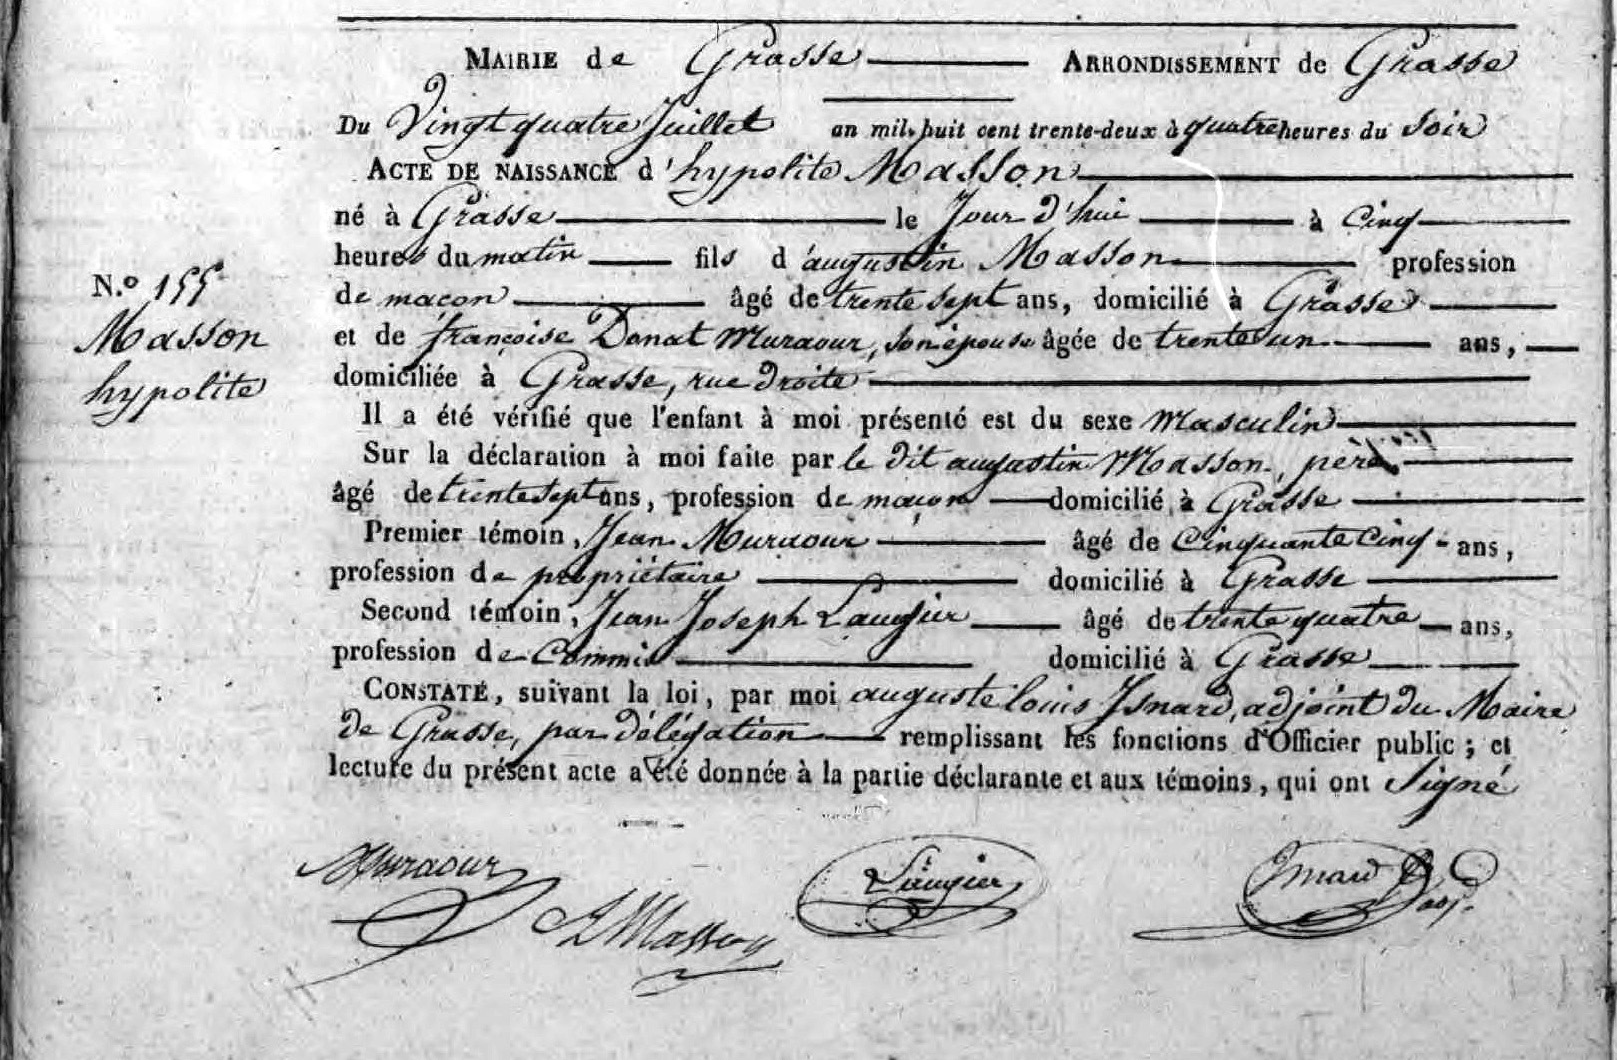 MAIRIE de Grasse ARRONDISSEMENT de Grasse
Du Vingt quatre Juillet an mil huit cent trente-deux à quatre heures du Soir
ACTE DE NAISSANCE d'hypolite Masson
né à Grasse le Jour d'hui à Cinq
heures du matin fils d'augustin Masson profession
de maçon âgé de trente sept ans, domicilié à Grasse
et de françoise Donat Muraour, son épouse âgée de trente un ans,
domiciliée à Grasse, rue droite
Il a été vérifié que l'enfant à moi présenté est du sexe Masculin
Sur la déclaration à moi faite par le dit augustin Masson, père,
âgé de trente sept ans, profession de maçon domicilié à Grasse
Premier témoin, Jean Muraour âgé de Cinquante Cinq ans,
profession de propriétaire domicilié à Grasse
Second témoin, Jean Joseph Laugier âgé de trente quatre ans,
profession de Commis domicilié à Grasse
CONSTATÉ, suivant la loi, par moi auguste louis Isnard, adjoint du Maire
de Grasse, par délégation remplissant les fonctions d'Officier public; et
lecture du présent acte a été donnée à la partie déclarante et aux témoins, qui ont Signé
N.o 155
Masson
hypolite
Muraour
A Masson
Laugier
Isnard adj.